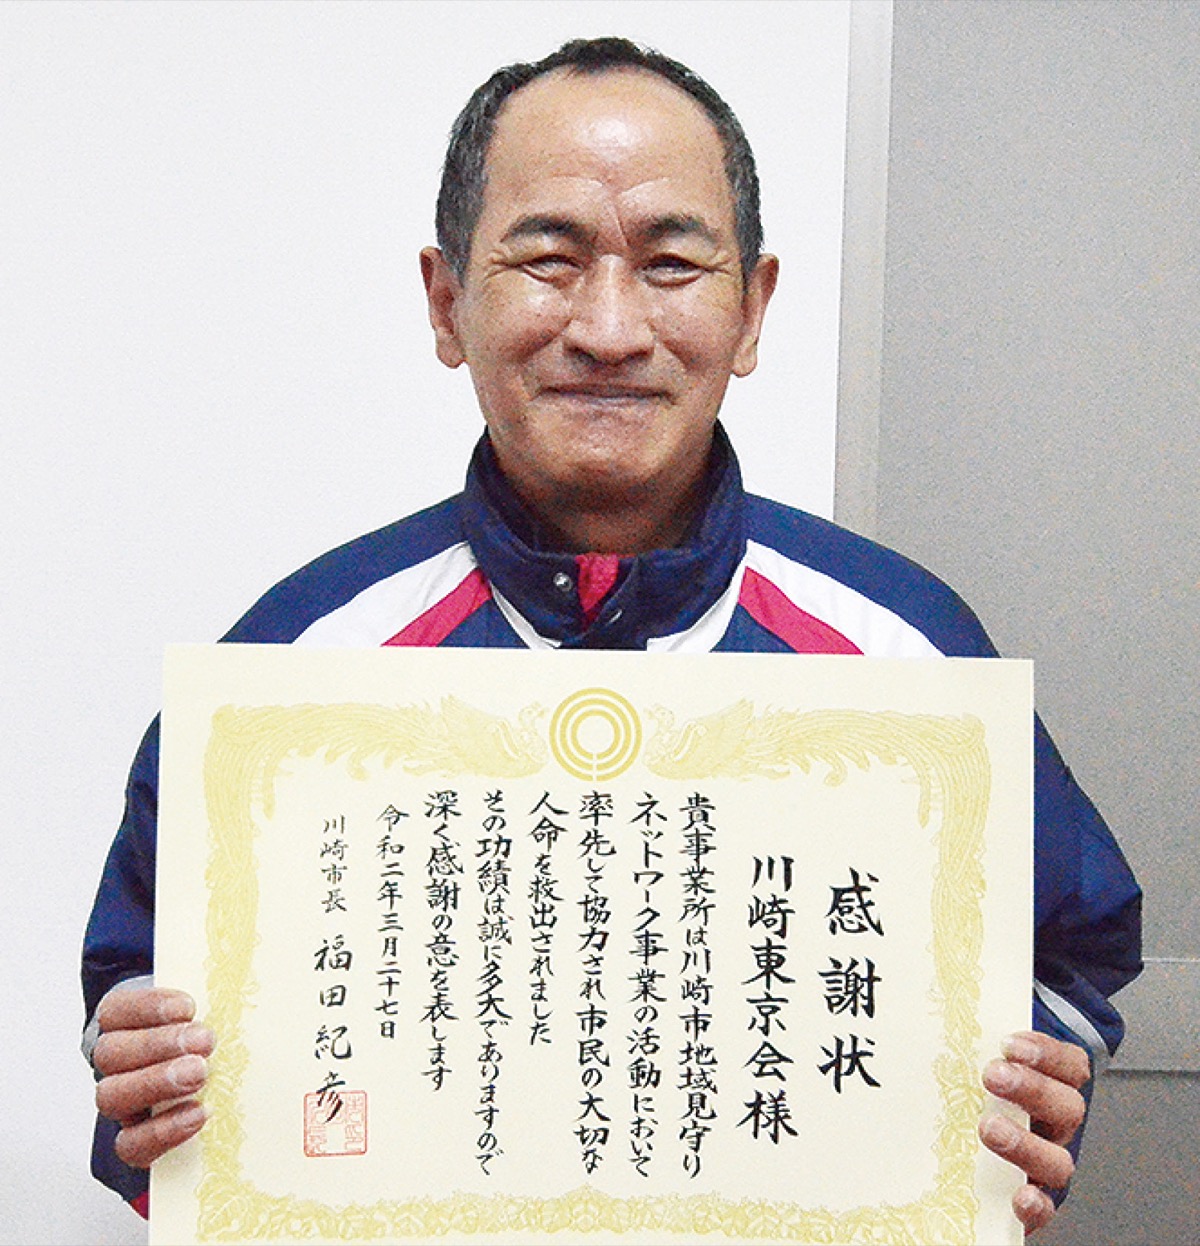 感謝状
川崎東京会様
貴事業所は川崎市地域見守り
ネットワーク事業の活動において
率先して協力され市民の大切な
人命を救出されました
その功績は誠に多大でありますので
深く感謝の意を表します
令和二年三月二十七日
川崎市長 福田紀彦